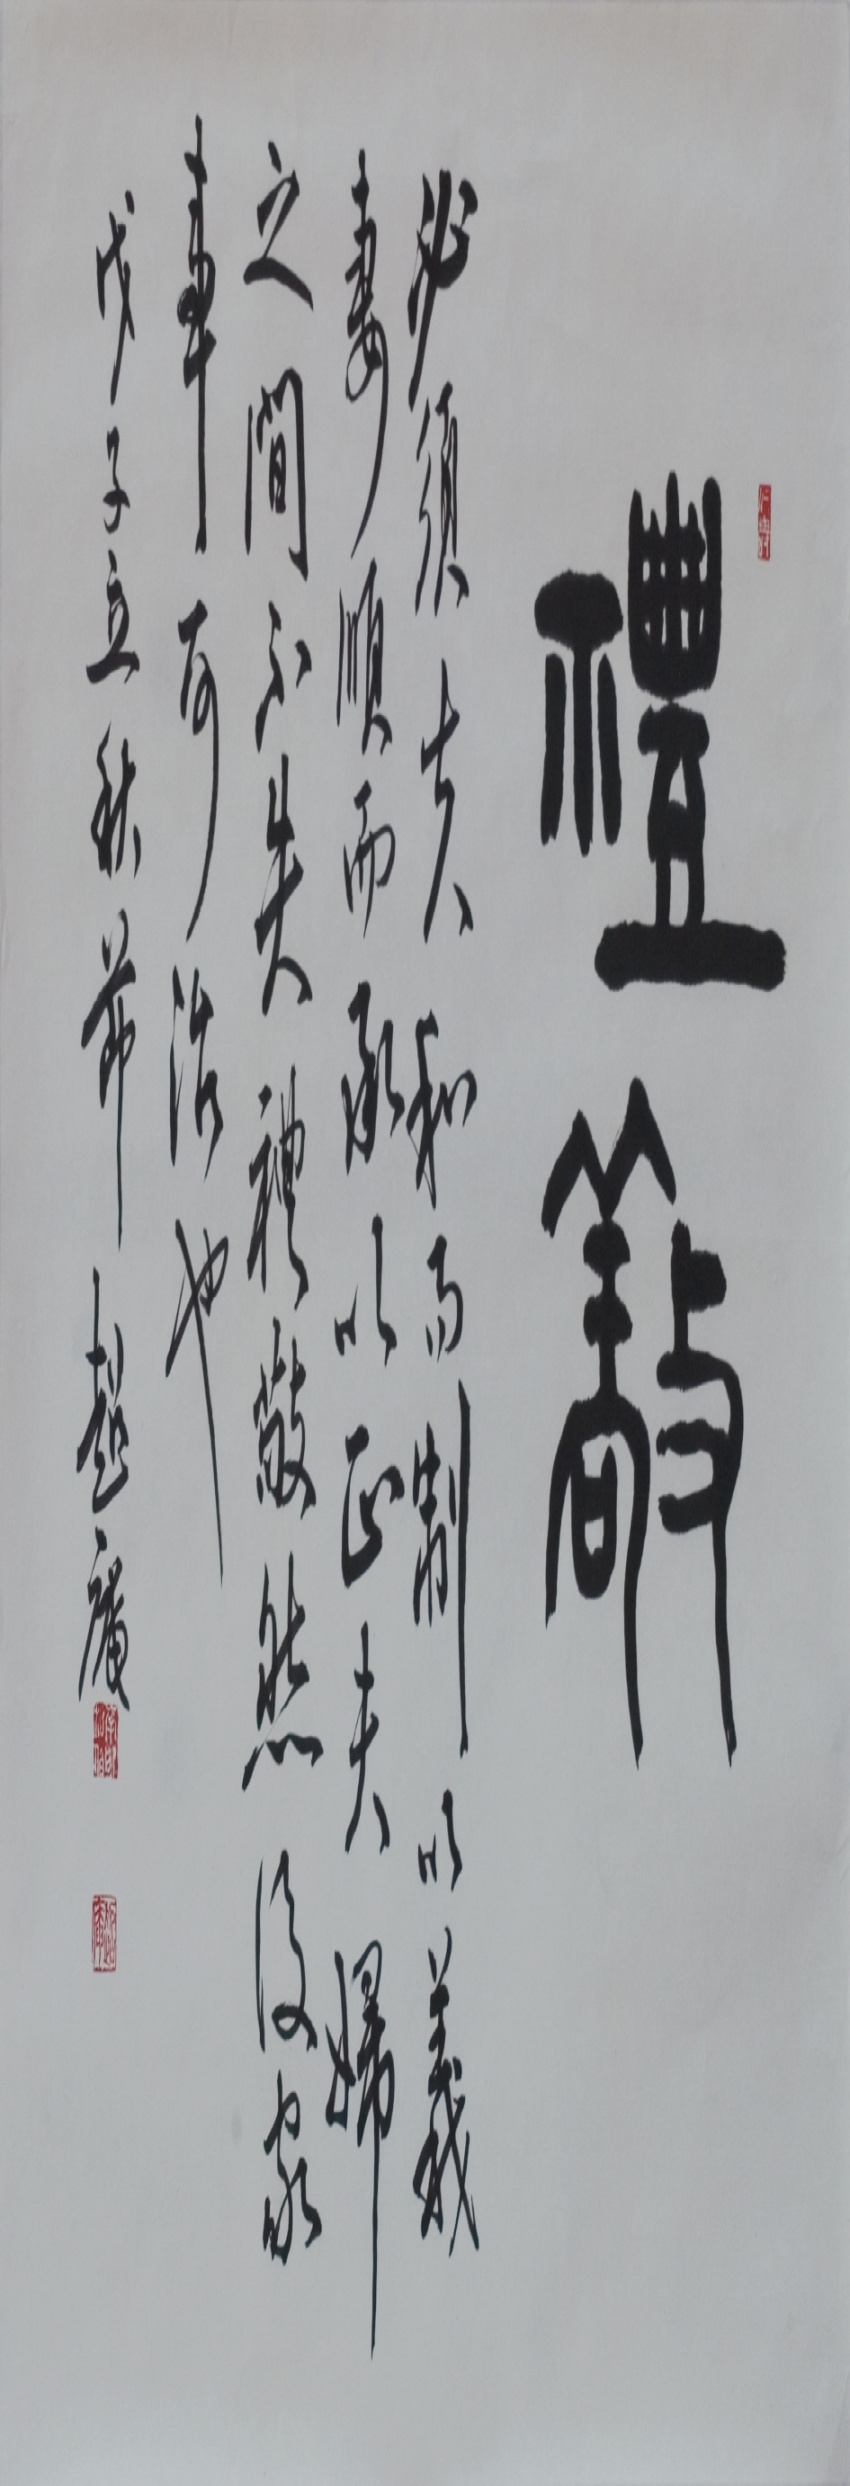 禮敬
必須夫和而制以義
妻順而承以正夫婦
之間不失禮敬然後家
事可治也
戊子立秋節趙廣